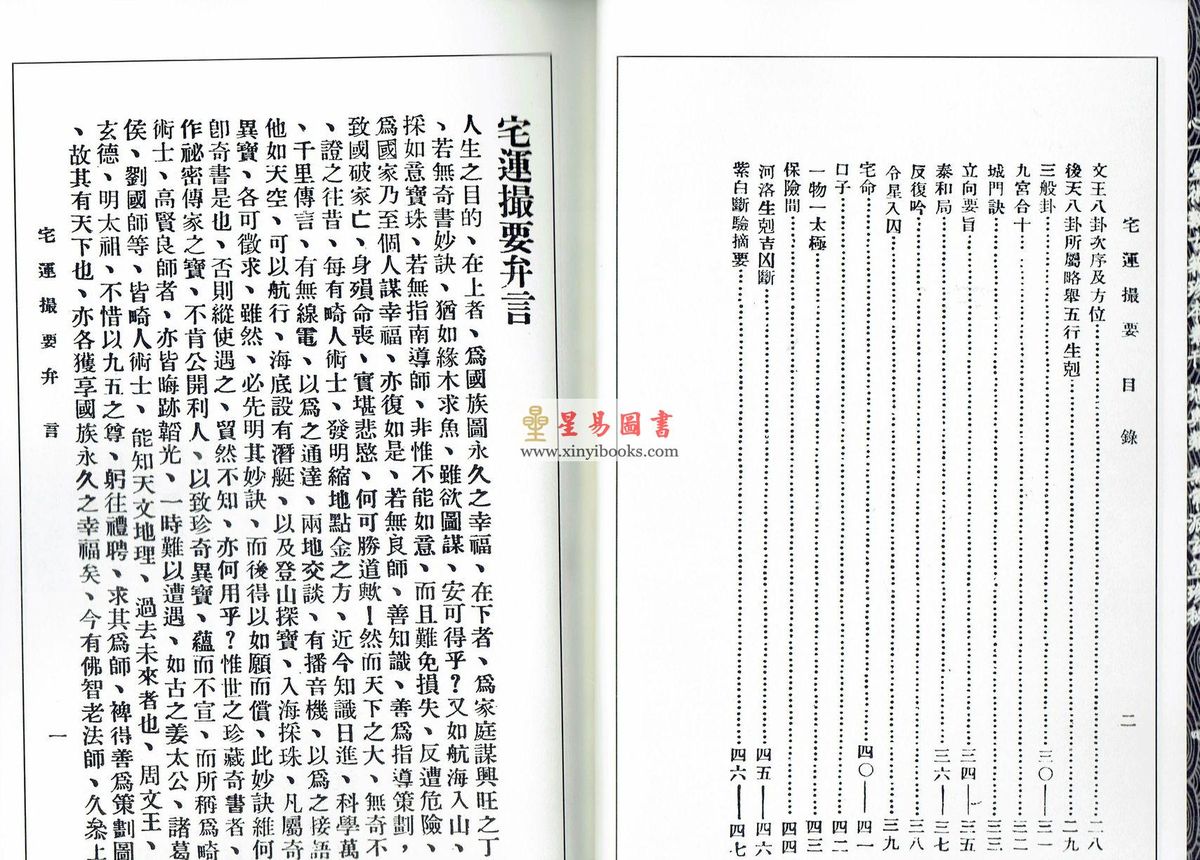 宅運撮要 目錄
二
文王八卦次序及方位……二八
後天八卦所屬略舉五行生剋……二九
三般卦……三〇——三一
九宮合十……三二
城門訣……三三
立向要旨……三四——三五
泰和局……三六——三七
反復吟……三八
令星入囚……三九
宅命……四〇——四一
口子……四二
一物一太極……四三
保險間……四四
河洛生剋吉凶斷……四五——四六
紫白斷驗摘要……四六——四七
宅運撮要弁言
人生之目的、在上者、爲國族圖永久之幸福、在下者、爲家庭謀興旺之丁
、若無奇書妙訣、猶如緣木求魚、雖欲圖謀、安可得乎？又如航海入山、
採如意寶珠、若無指南導師、非惟不能如意、而且難免損失、反遭危險、
爲國家乃至個人謀幸福、亦復如是、若無良師、善知識、善爲指導策劃，
致國破家亡、身殞命喪、實堪悲愍、何可勝道歟！然而天下之大、無奇不
、證之往昔、每有畸人術士、發明縮地點金之方、近今知識日進、科學萬
、千里傳言、有無線電、以爲之通達、兩地交談、有播音機、以爲之接語
他如天空、可以航行、海底設有潛艇、以及登山探寶、入海採珠、凡屬奇
異寶、各可徵求、雖然、必先明其妙訣、而後得以如願而償、此妙訣維何
卽奇書是也、否則縱使遇之、貿然不知、亦何用乎？惟世之珍藏奇書者、
作祕密傳家之寶、不肯公開利人、以致珍奇異寶、蘊而不宣、而所稱爲畸
術士、高賢良師者、亦皆晦跡韜光、一時難以遭遇、如古之姜太公、諸葛
侯、劉國師等、皆畸人術士、能知天文地理、過去未來者也、周文王、
玄德、明太祖、不惜以九五之尊、躬往禮聘、求其爲師、裨得善爲策劃圖
、故其有天下也、亦各獲享國族永久之幸福矣、今有佛智老法師、久叅上
宅運撮要弁言
一
星易圖書
www.xinyibooks.com